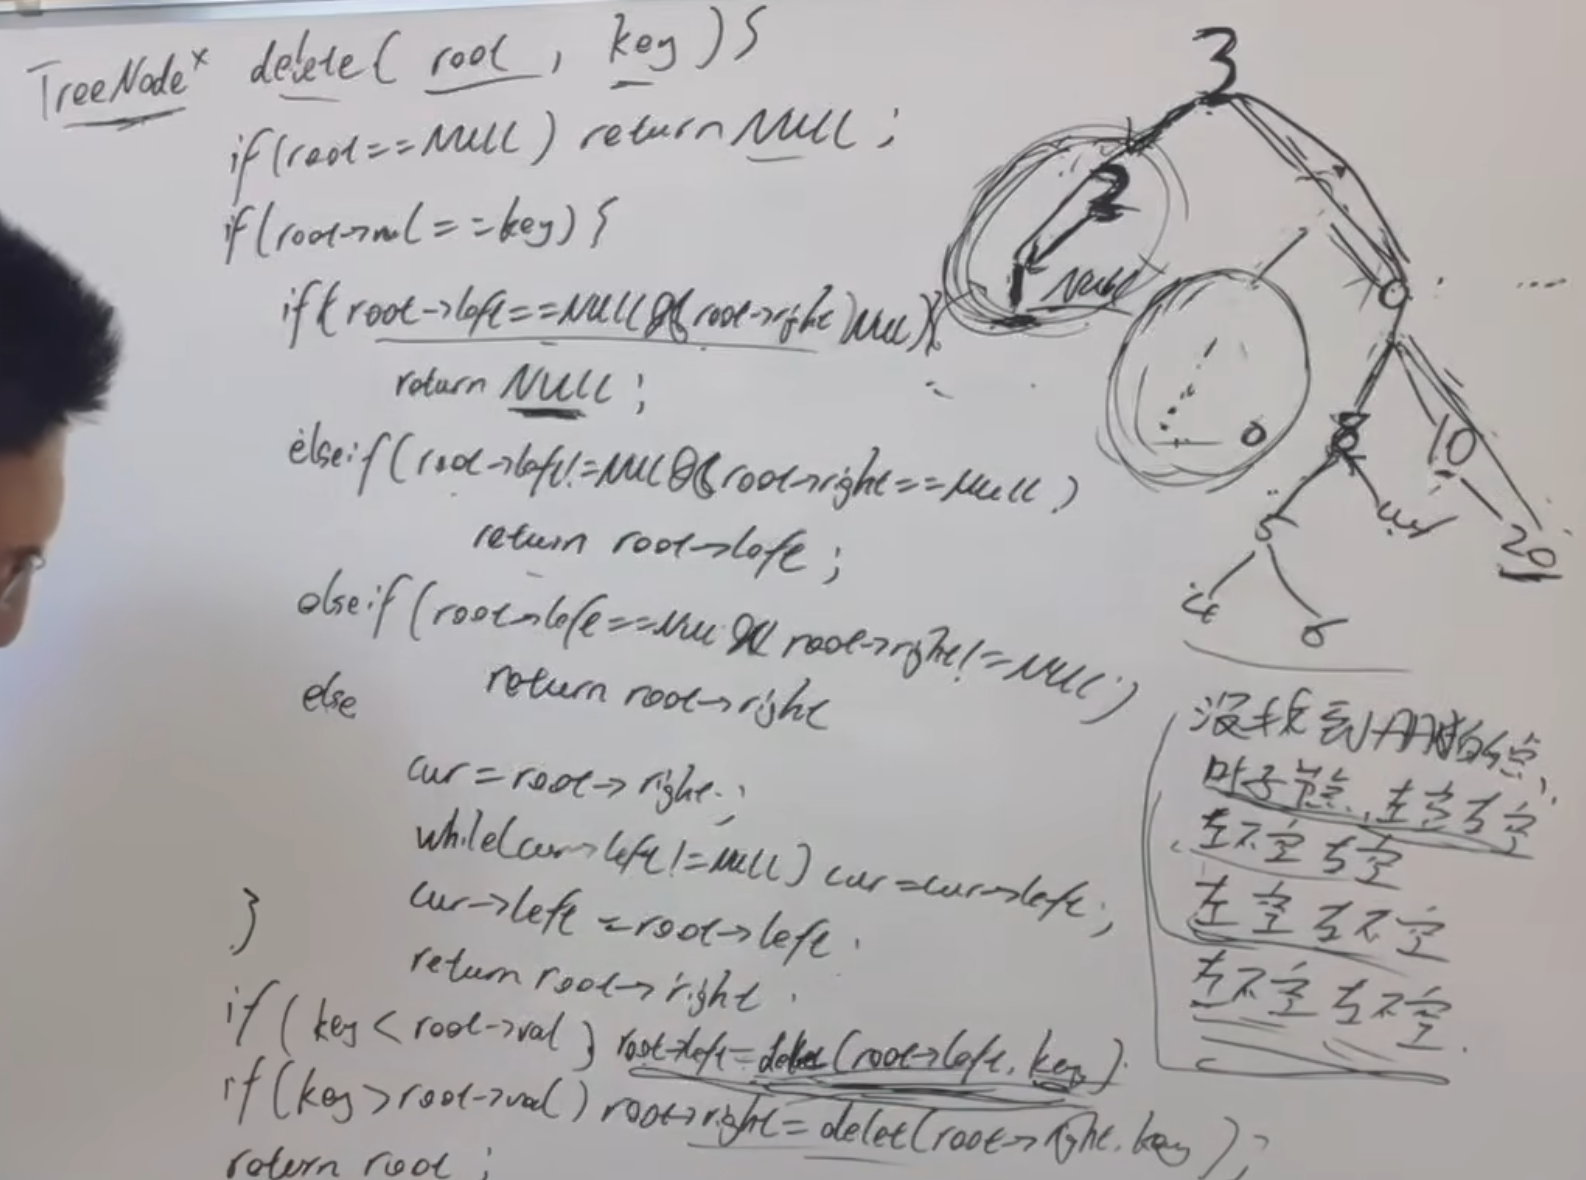 TreeNode* delete( root , key ) {
if(root==NULL) return NULL ;
if(root->val==key) {
if( root->left==NULL && root->right NULL){
return NULL ;
else if(root->left!=NULL && root->right==NULL )
return root->left ;
else if(root->left==NULL && root->right!=NULL)
return root->right
else
cur=root->right ;
while(cur->left!=NULL) cur=cur->left ;
cur->left =root->left .
return root->right .
}
if( key<root->val ) root->left=delet(root->left, key).
if(key>root->val) root->right=delet(root->right, key );
return root ;
3
2
1 NULL
8 10
5
20
4 6
没找到 的点,
叶子节点、左空右空
左不空右空
左空右不空
左不空右不空.